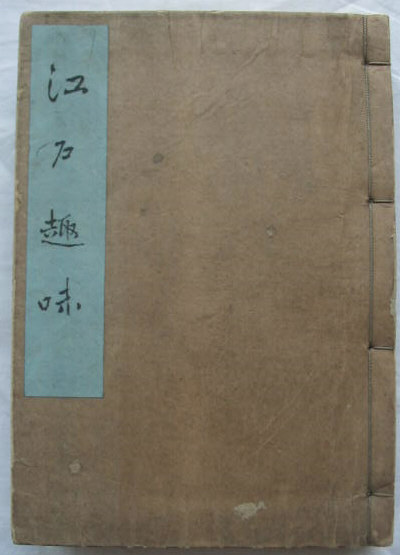 江戸趣味